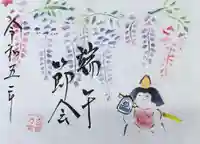 端午
節会
令和五年